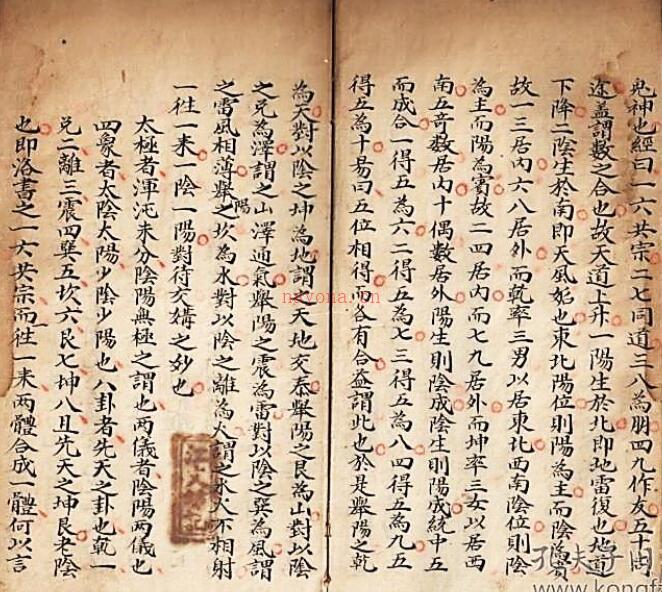 鬼神也經曰一六共宗二七同道三八為朋四九作友五十同
途盖謂數之合也故天道上升一陽生於北即地雷復也地道
下降二陰生於南即天風姤也東北陽位則陽為主而陰為賓
故一三居内六八居外而乾率三男以居東北西南陰位則陰
為主而陽為賓故二四居内而七九居外而坤率三女以居西
南五竒數居内十偶數居外陽生則陰成陰生則陽成統中五
而成合一得五為六二得五為七三得五為八四得五為九五
得五為十易曰五位相得而各有合盖謂此也於是舉陽之乾
為天對以陰之坤為地謂之天地交泰舉陽之艮為山對以陰
之兑為澤謂之山澤通氣舉陽之震為雷對以陰之巽為風謂
之雷風相薄舉陽之坎為水對以陰之離為火謂之水火不相射
一徃一来一陰一陽對待交媾之妙也
太極者渾沌未分陰陽無極之謂也两儀者陰陽两儀也
四象者太陰太陽少陰少陽也八卦者先天之卦也乹一
兑二離三震四巽五坎六艮七坤八且先天之坤艮老陰
也即洛書之一六共宗而一徃一来两體合成一體何以言
nayona.cn
孔夫子旧
www.kongf